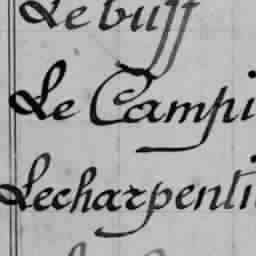 Le buff
Le Campi
Lecharpenti